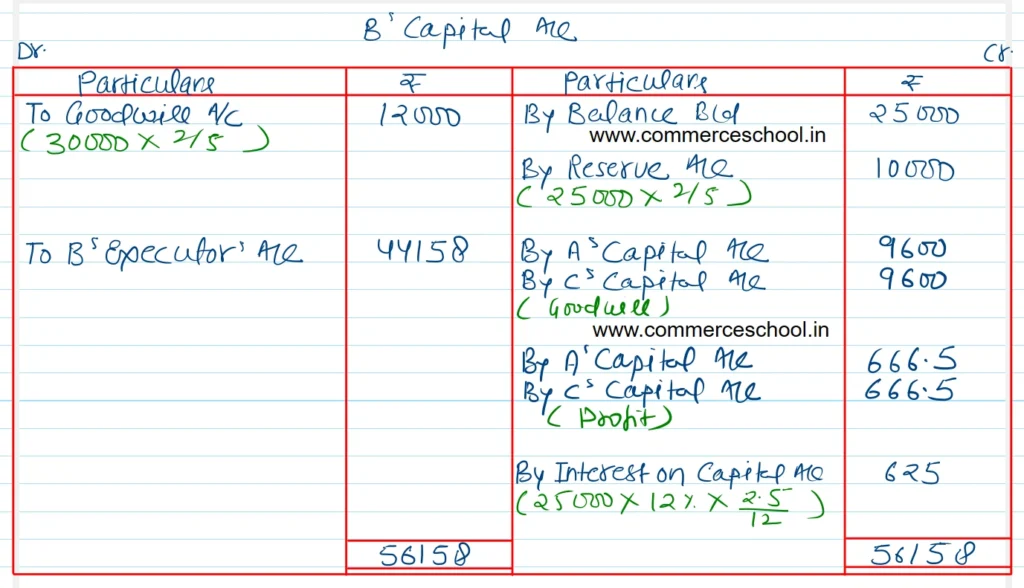 Bˢ Capital A/c
Dr. Cr.
Particulars ₹ Particulars ₹
To Goodwill A/c 12000 By Balance B/d 25000
(30000 × 2/5 ) www.commerceschool.in
By Reserve A/c 10000
(25000 × 2/5)
To Bˢ Executorˢ A/c 44158 By Aˢ Capital A/c 9600
By Cˢ Capital A/c 9600
(Goodwill)
www.commerceschool.in
By Aˢ Capital A/c 666.5
By Cˢ Capital A/c 666.5
(Profit)
By Interest on Capital A/c 625
(25000 × 12% × 2.5/12 )
56158 56158